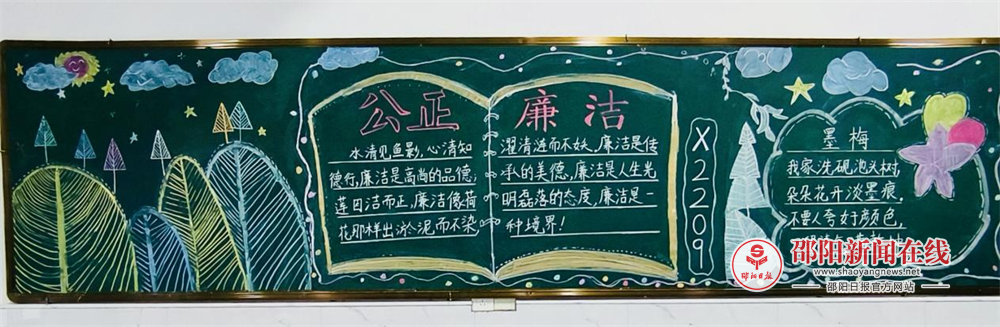 公正
水清见鱼影,心清知
德行,廉洁是高尚的品德,
莲因洁而正,廉洁像荷
花那样出淤泥而不染
廉洁
濯清涟而不妖,廉洁是传
承的美德,廉洁是人生光
明磊落的态度,廉洁是一
种境界!
X2209
墨梅
我家洗砚池头树,
朵朵花开淡墨痕,
不要人夸好颜色,
邵阳日报
邵阳新闻在线
www.shaoyangnews.net
邵阳日报官方网站